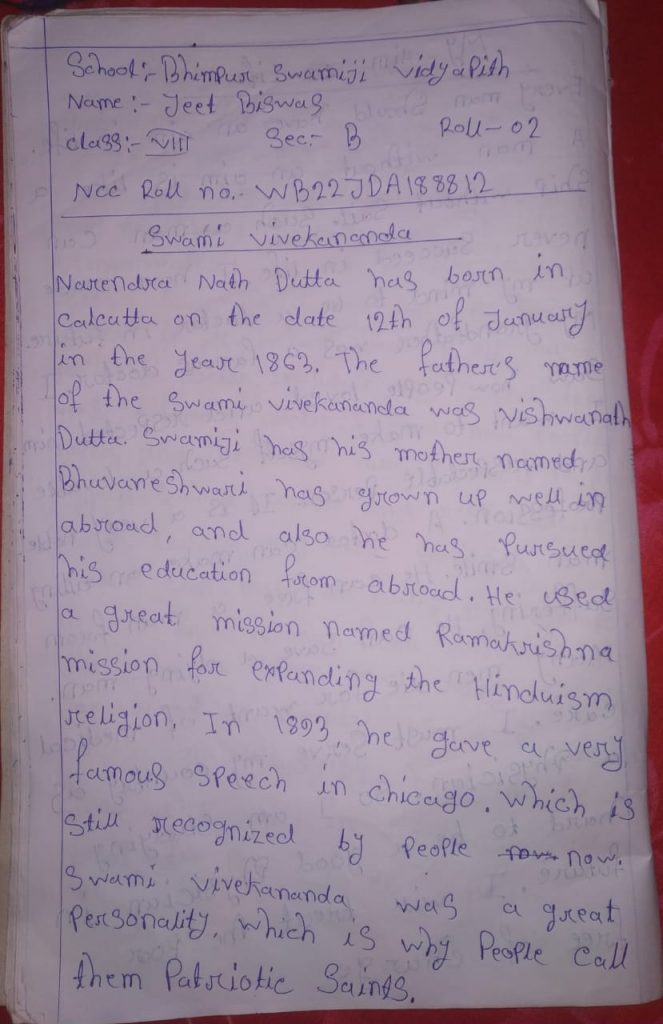 School:- Bhimpur Swamiji vidyapith
Name:- Jeet Biswas
class:- VIII Sec:- B Roll- 02
NCC Roll no.- WB22JDA188812
Swami vivekananda
Narendra Nath Dutta has born in
Calcutta on the date 12th of January
in the year 1863. The father's name
of the Swami vivekananda was vishwanath
Dutta. Swamiji has his mother named
Bhuvaneshwari has grown up well in
abroad, and also he has Pursued
his education from abroad. He used
a great mission named Ramakrishna
mission for expanding the Hinduism
religion. In 1893, he gave a very
famous speech in chicago. Which is
Still recognized by People now.
Swami vivekananda was a great
Personality, Which is why People Call
them Patriotic Saints.